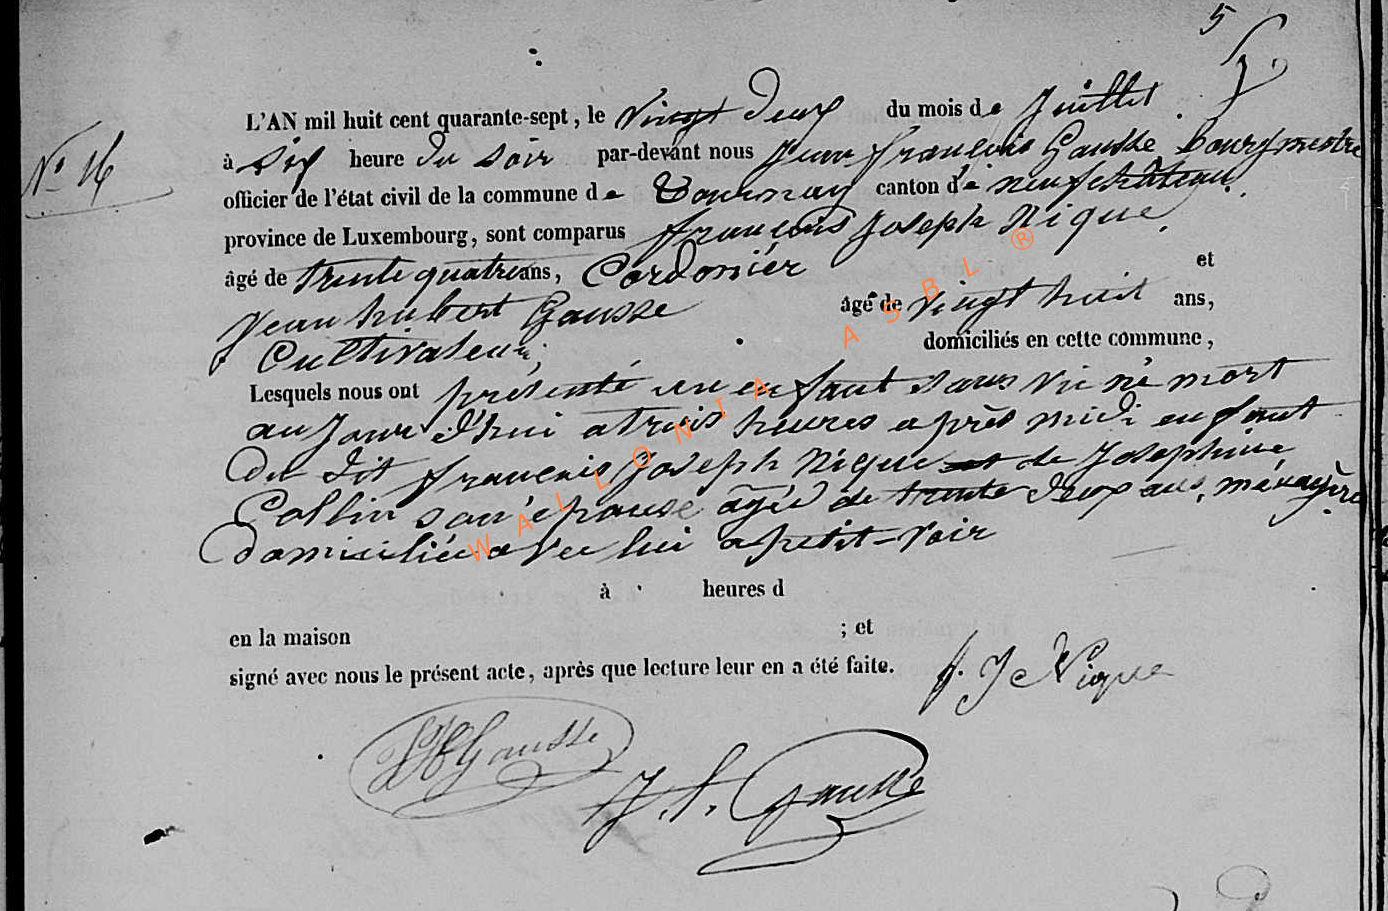 5
L'AN mil huit cent quarante-sept, le vingt deux du mois de Juillet
N° 16
à six heure du soir par-devant nous Jean françois Gausse bourgmestre
officier de l'état civil de la commune de Tournay canton de neufchâteau,
province de Luxembourg, sont comparus françois Joseph Nique,
âgé de trente quatre ans, Cordonnier et
Jean hubert Gausse âgé de vingt huit ans,
Cultivateur, domiciliés en cette commune,
Lesquels nous ont présenté un enfant sans vie né mort
aujour d'hui a trois heures après midi enfant
du dit françois Joseph Nique et de Josephine
Collin son épouse agée de trente deux ans, ménagère
domiciliée avec lui a petit-voir
à heures d
en la maison ; et
signé avec nous le présent acte, après que lecture leur en a été faite.
f. J Nique
JHGausse
J. f. Gausse
WALLONIA ASBL ®